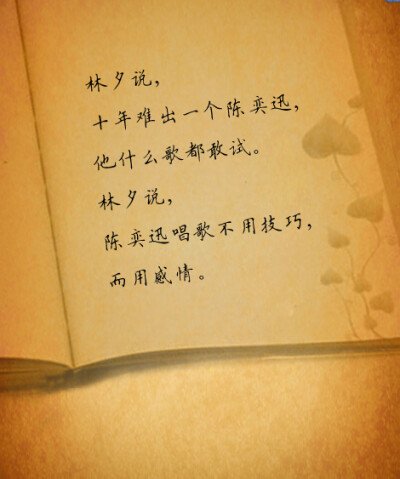 林夕说，
十年难出一个陈奕迅，
他什么歌都敢试。
林夕说，
陈奕迅唱歌不用技巧，
而用感情。